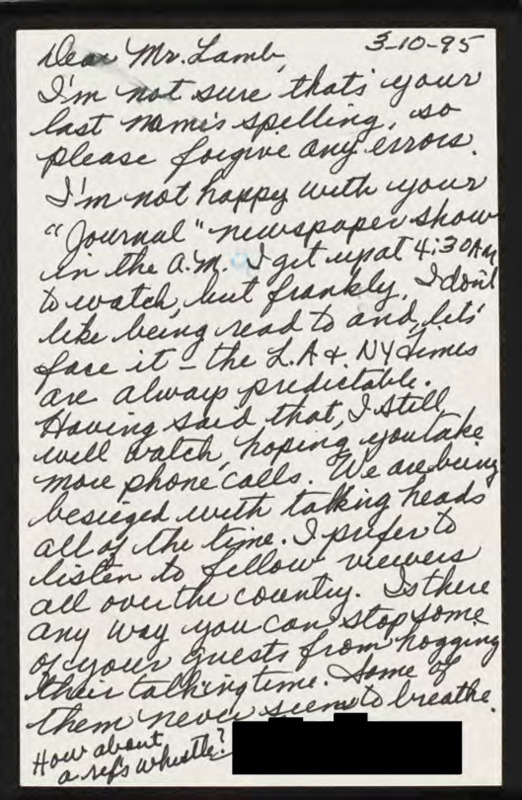 Dear Mr. Lamb, 3-10-95
I'm not sure that's your
last name's spelling, so
please forgive any errors.
I'm not happy with your
"Journal" newspaper show
in the A.M. I get up at 4:30AM
to watch, but frankly, I don't
like being read to and, let's
face it - the L.A. & NY Times
are always predictable.
Having said that, I still
will watch, hoping you take
more phone calls. We are being
besieged with talking heads
all of the time. I prefer to
listen to fellow viewers
all over the country. Is there
any way you can stop some
of your guests from hogging
their talking time. Some of
them never seem to breathe.
How about
a ref's whistle?